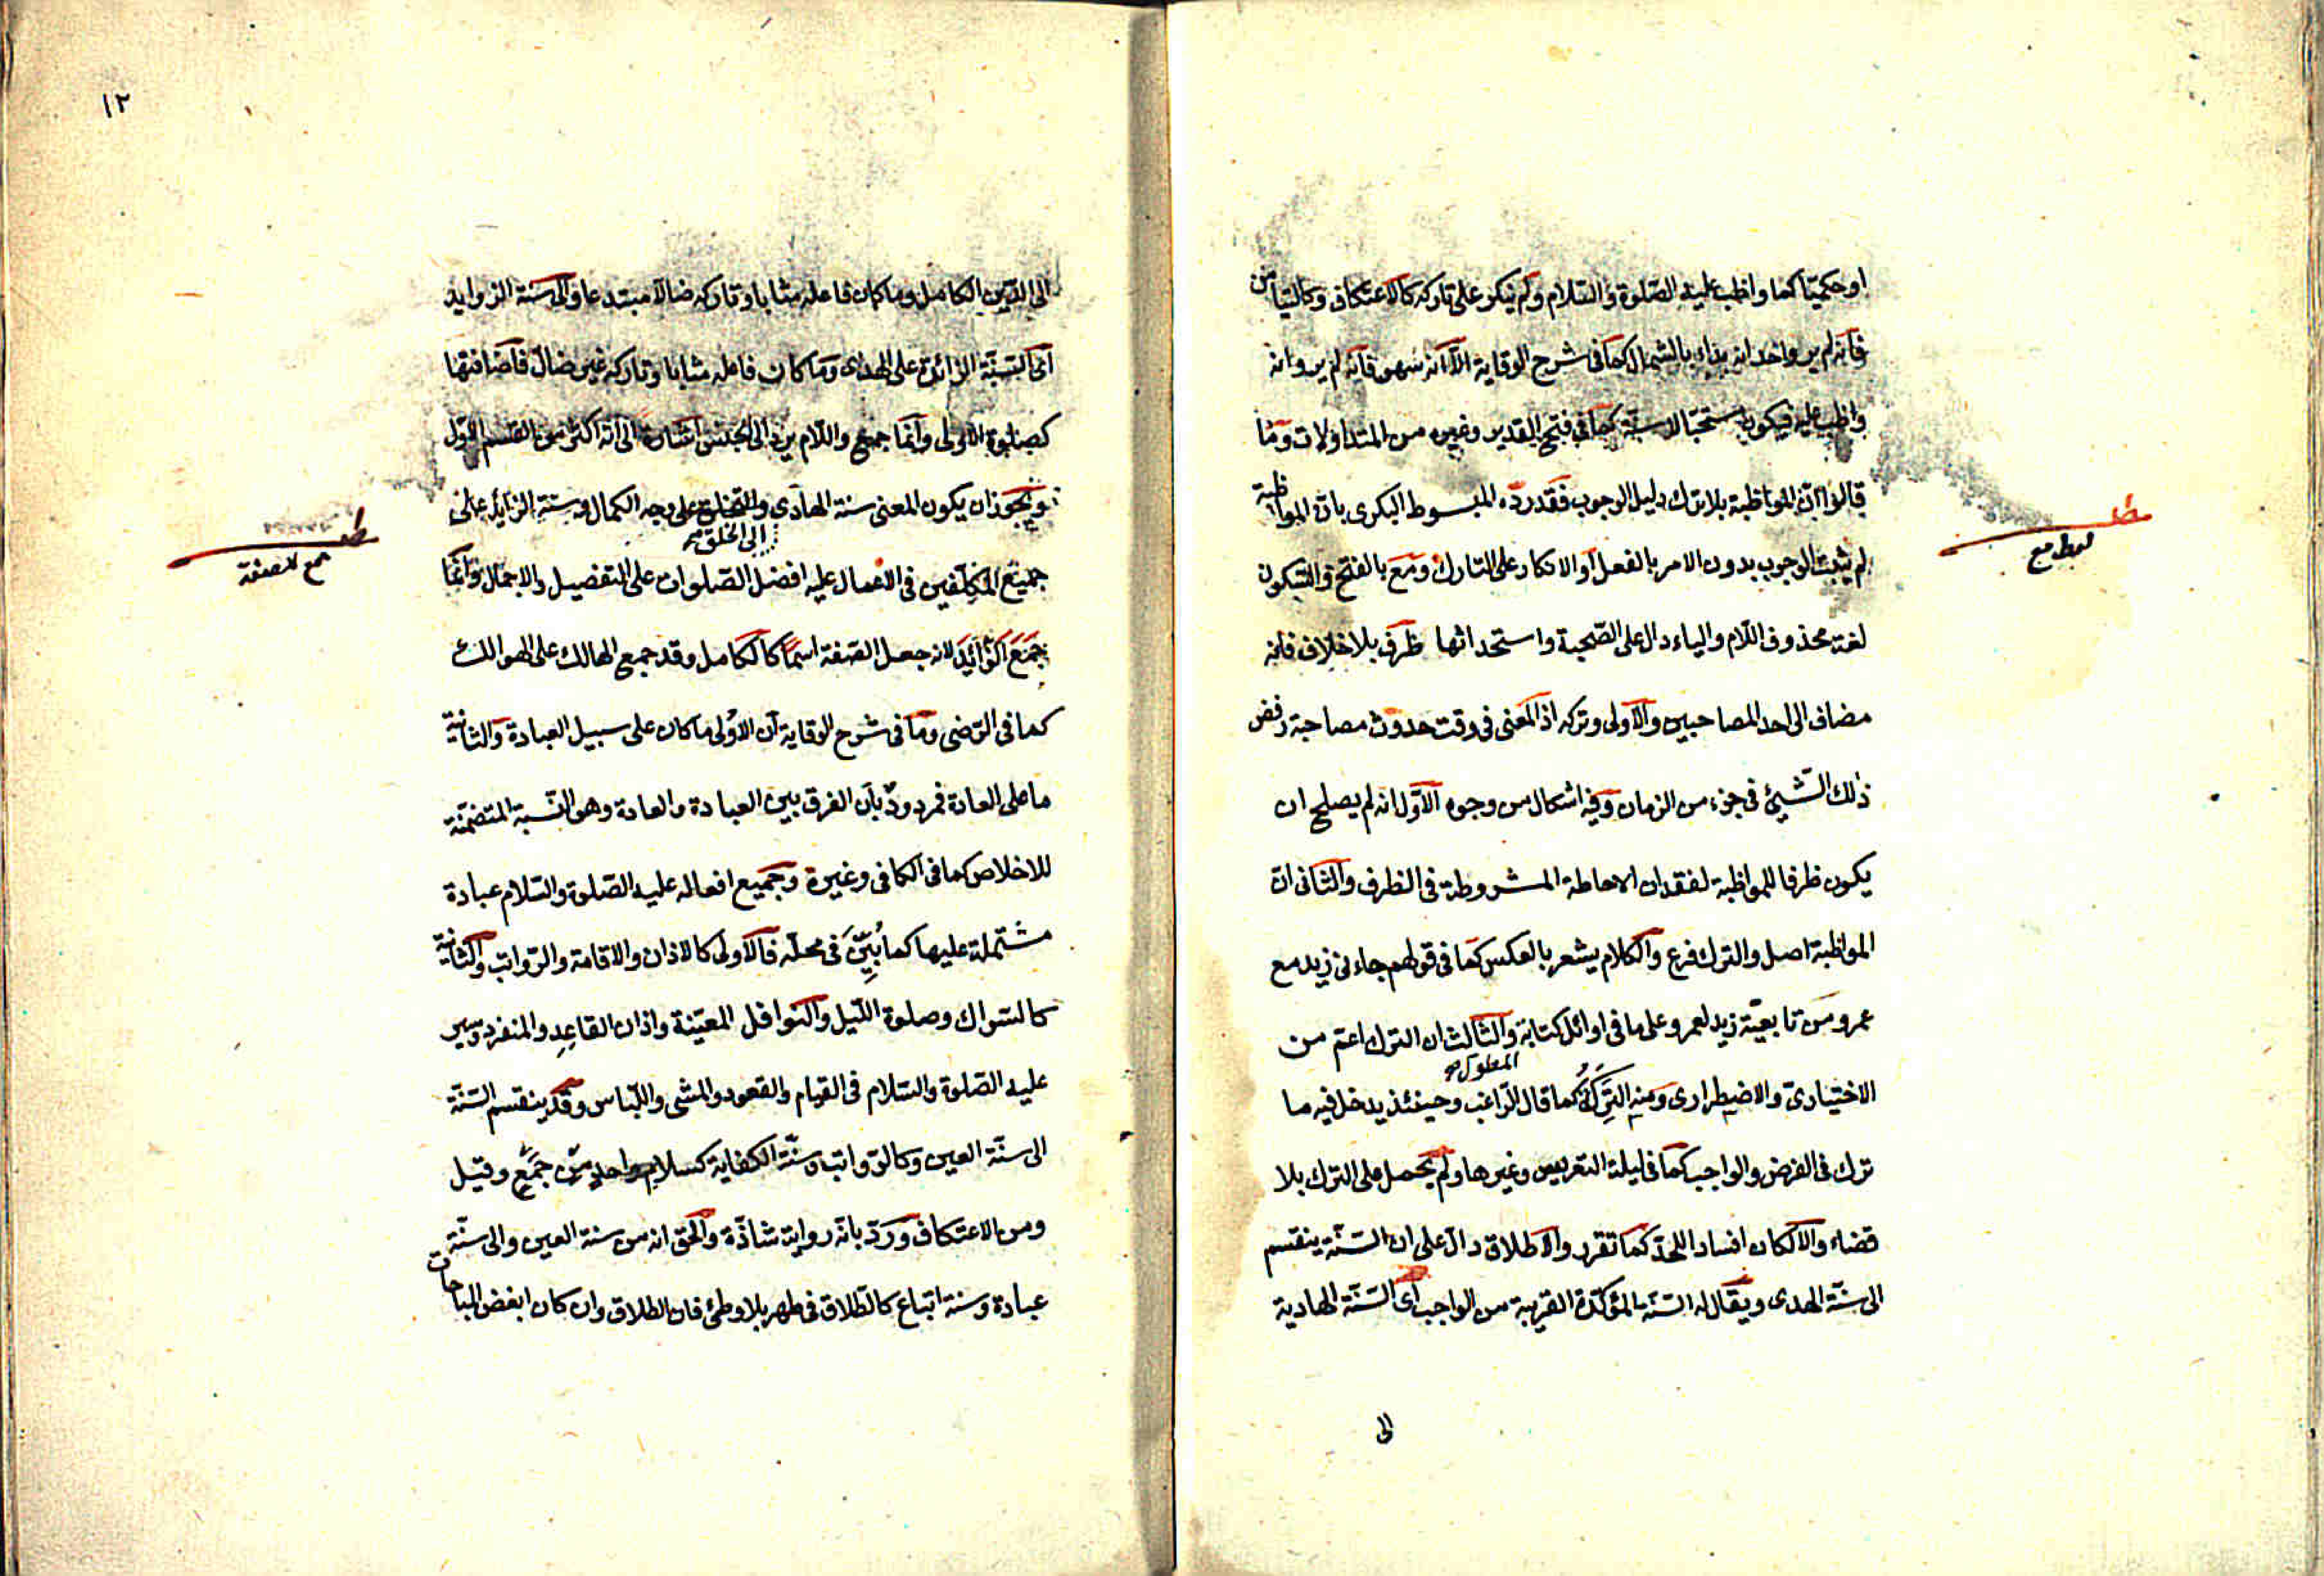 او حكميّا كما واظب عليه الصّلوة والسّلام ولم ينكر على تاركه كالاعتكاف وكالتيامن
فانه لم يرو احد انه بداء بالشمال كما فى شرح الوقاية الّا انه سهو فانه لم يرو انه
واظب عليه فيكون مستحبّا لا سنّة كما فى فتح القدير وغيره من المتداولات وما
قالوا انّ المواظبة بلا ترك دليل الوجوب فقد ردّه المبسوط البكرى بانّ المواظبة
لم يثبت الوجوب بدون الامر بالفعل او الانكار على التارك ومع بالفتح والسّكون
لغة محذوف اللّام والياء دالّ على الصّحبة واستحداثها ظرف بلا خلاف فانه
مضاف الى احد المصاحبين والاولى وتركه اذ المعنى فى وقت حدوث مصاحبة رفض
ذلك الشّيئ فى جزء من الزمان وفيه اشكال من وجوه الاوّل انه لم يصلح ان
يكون ظرفا للمواظبة لفقدان الاحاطة المشروطة فى الظرف والثّانى انّ
المواظبة اصل والترك فرع والكلام يشعر بالعكس كما فى قولهم جاءنى زيد مع
عمرو من تابعيّة زيد لعمرو على ما فى اوائل كتابة والثالث ان الترك اعمّ من
المطلوك
الاختيارىّ والاضطرارى ومنه التركة كما قال الرّاغب وحينئذ يدخل فيه ما
ترك فى الفرض والواجب كما فى ليلة التعريس وغيرها ولم يحمل على الترك بلا
قضاء والّا لكان افساد اللحدّ كما تقرر والاطلاق دالّ على ان السّنّة ينقسم
الى سنّة الهدى ويقال له السّنّة المؤكّدة القريبة من الواجب اى السّنّة الهادية
الى
مط
لفظ مع
١٢
الى الدّين الكامل وما كان فاعله مثابا وتاركه ضالّا مبتدعا والى سنة الزوايد
اى السّنّة الزائدة على الهدى وما كان فاعله مثابا وتاركه غير ضالّ فاضافتها
كصلوة الاولى وانّما جمع واللّام يردّ الى الجنس اشارة الى انه اكثر من القسم الاوّل
ويجوز ان يكون المعنى سنة الهادى والتخلق على وجه الكمال وسنة الزائد على
الى الخلق
جميع المكلّفين فى الاعمال عليه افضل الصّلوات على التفصيل والاجمال وانّما
جمع الزّوائد لانه جعل الصّفة اسمًا كالكامل وقد جمع الهالك على الهوالك
كما فى الرّضى وما فى شرح الوقاية ان الاولى ما كان على سبيل العبادة والثانية
ما على العادة فمردودّ بان الفرق بين العبادة والعادة وهو النّسبة المتضمّنة
للاخلاص كما فى الكافى وغيره وجميع افعاله عليه الصّلوة والسّلام عبادة
مشتملة عليها كما بُيِّنَ فى محلّه فالاولى كالاذان والاقامة والرّواتب والثانية
كالسّواك وصلوة اللّيل والنوافل المعيّنة واذان القاعِدِ والمنفرد وسير
عليه الصّلوة والسّلام فى القيام والقعود والمشى واللّباس وقد ينقسم السّنّة
الى سنّة العين وكالرّواتب وسنّة الكفاية كسلام واحد من جمع وقيل
ومن الاعتكاف وردّ بانّه رواية شاذّة والحق انه من سنة العين والى سنّة
عبادة وسنة اتباع كالطّلاق فى طهر بلا وطئ فان الطلاق وان كان ابغض المباحات
مط
جمع الصفة